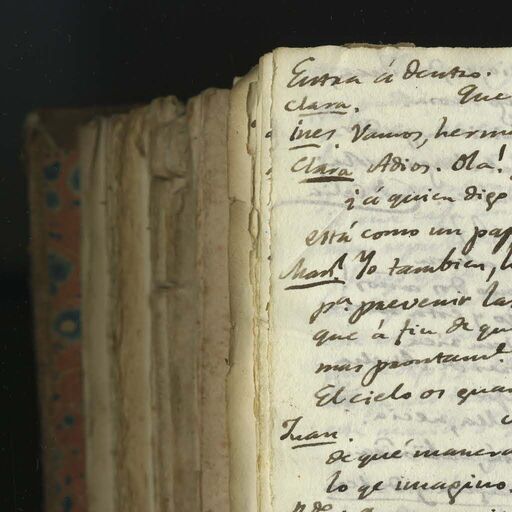 Entra á dentro.
Clara. Que
ines. Vamos, herm
Clara Adios. Ola!
¡á quien digo
está como un pap
Mart Yo tambien,
pa. prevenir las
que á fin de qu
mas prontam.
El cielo os guar
Juan.
de qué manera
lo qe imagino.